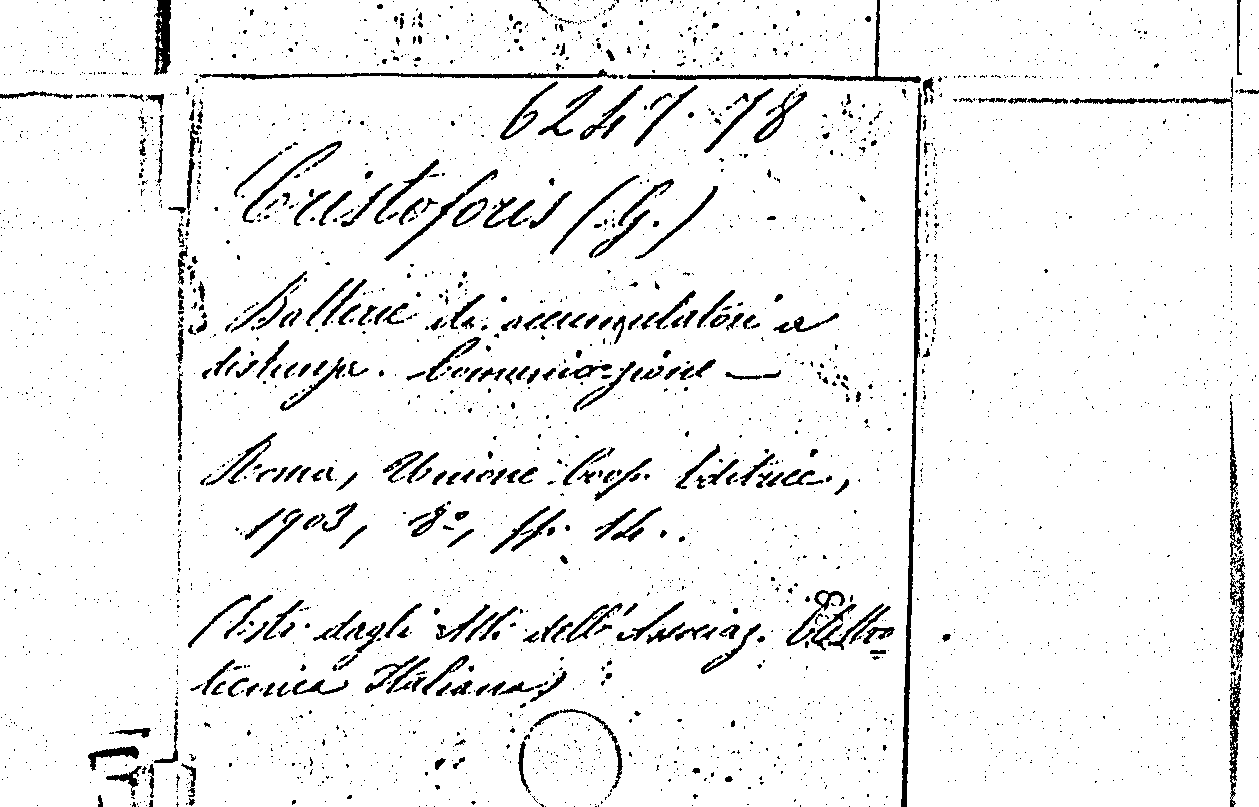 6247·78
Cristoforis (G.)
Batterie di accumulatori a
distanza. Comunicazione —
Roma, Unione Coop. Editrice,
1903, 8°, pp. 14..
(Estr. dagli Atti dell' Associaz. Elettro
tecnica Italiana)